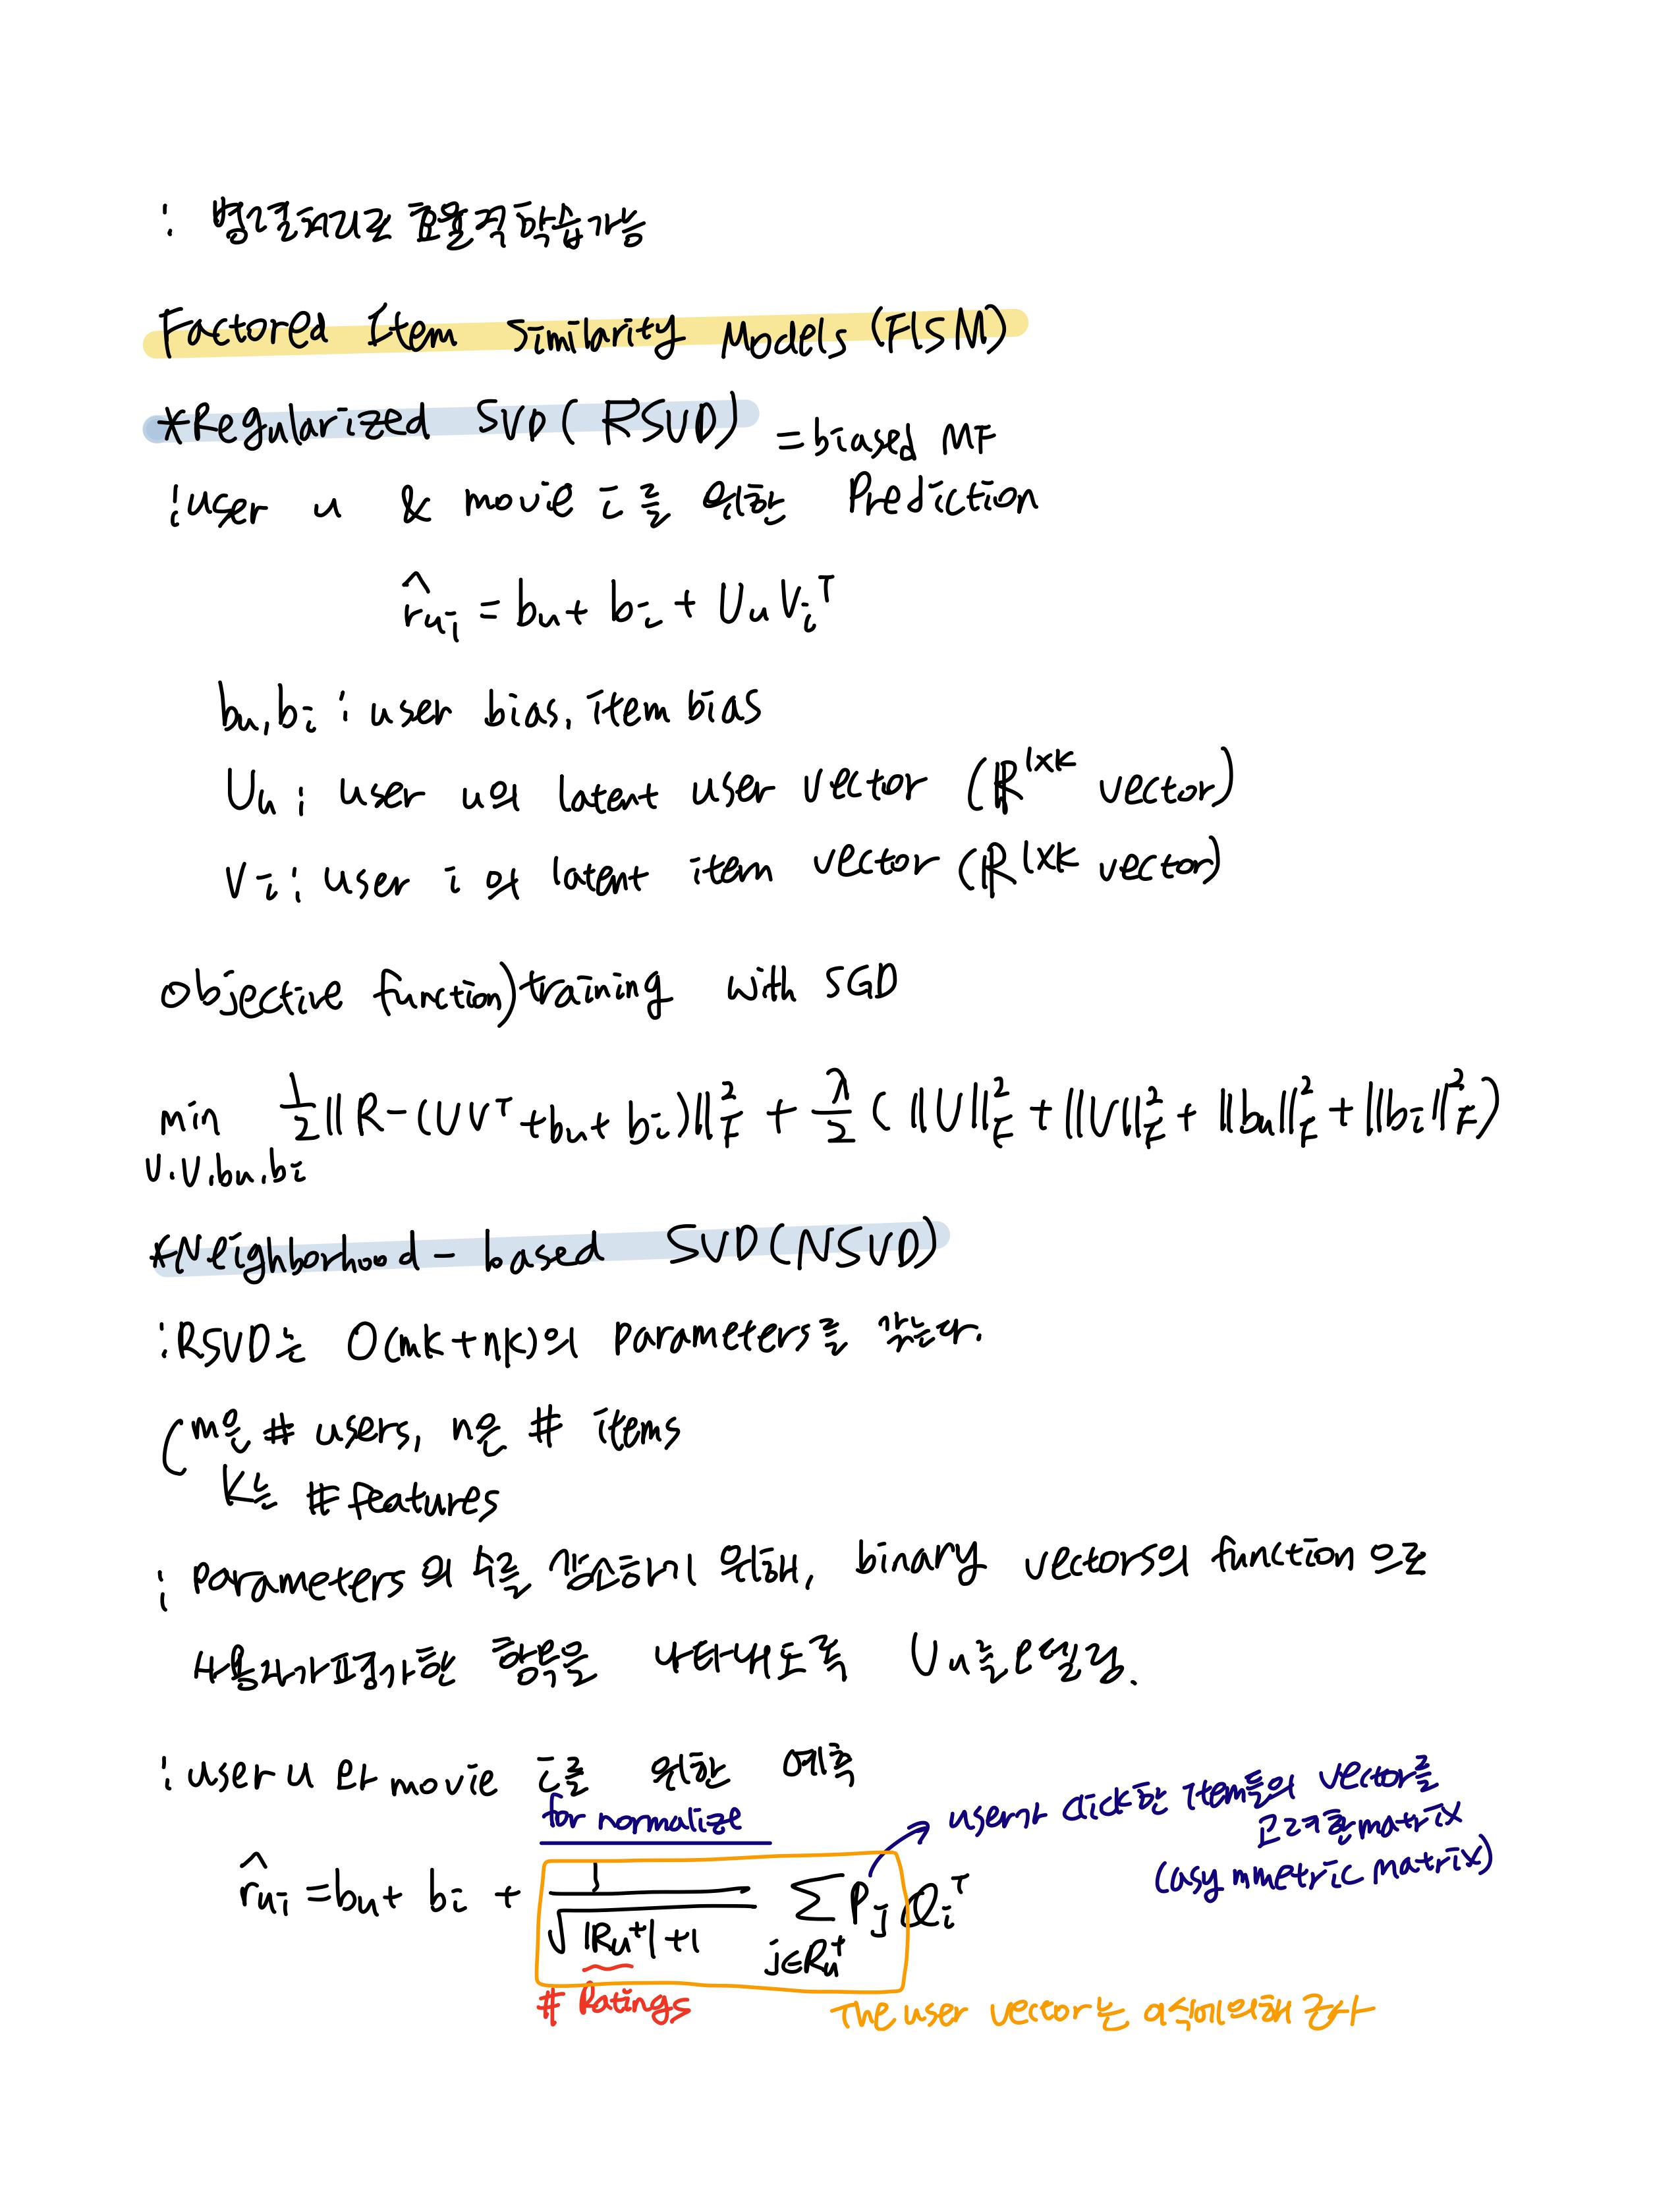 : 병렬처리로 효율적 학습가능
Factored Item Similarity Models (FISM)
*Regularized SVD (RSVD) = biased MF
: user u & movie i를 위한 Prediction
r̂ui = bu + bi + UuViᵀ
bu, bi : user bias, item bias
Uu : user u의 latent user vector (ℝ^1xK vector)
Vi : user i의 latent item vector (ℝ^1xK vector)
objective function) training with SGD
min 1/2 ||R-(UVᵀ+bu+bi)||²F + λ/2 (||U||²F + ||V||²F + ||bu||²F + ||bi||²F)
U.V.bu.bi
*Neighborhood-based SVD (NSVD)
: RSVD는 O(mk+nk)의 parameters를 갖는다.
(m은 # users, n은 # items
K는 # features
: parameters의 수를 감소하기 위해, binary vectors의 function으로
사용자가 평가한 항목을 나타내도록 Uu를 모델링.
: user u 와 movie i를 위한 예측
for normalize
user가 click한 item들의 vector를
고려한 matrix
(asymmetric matrix)
r̂ui = bu + bi + 1/√|Ru⁺|+1 Σ j∈Ru⁺ Pj Qiᵀ
# Ratings
The user vector는 이식에의해 근사